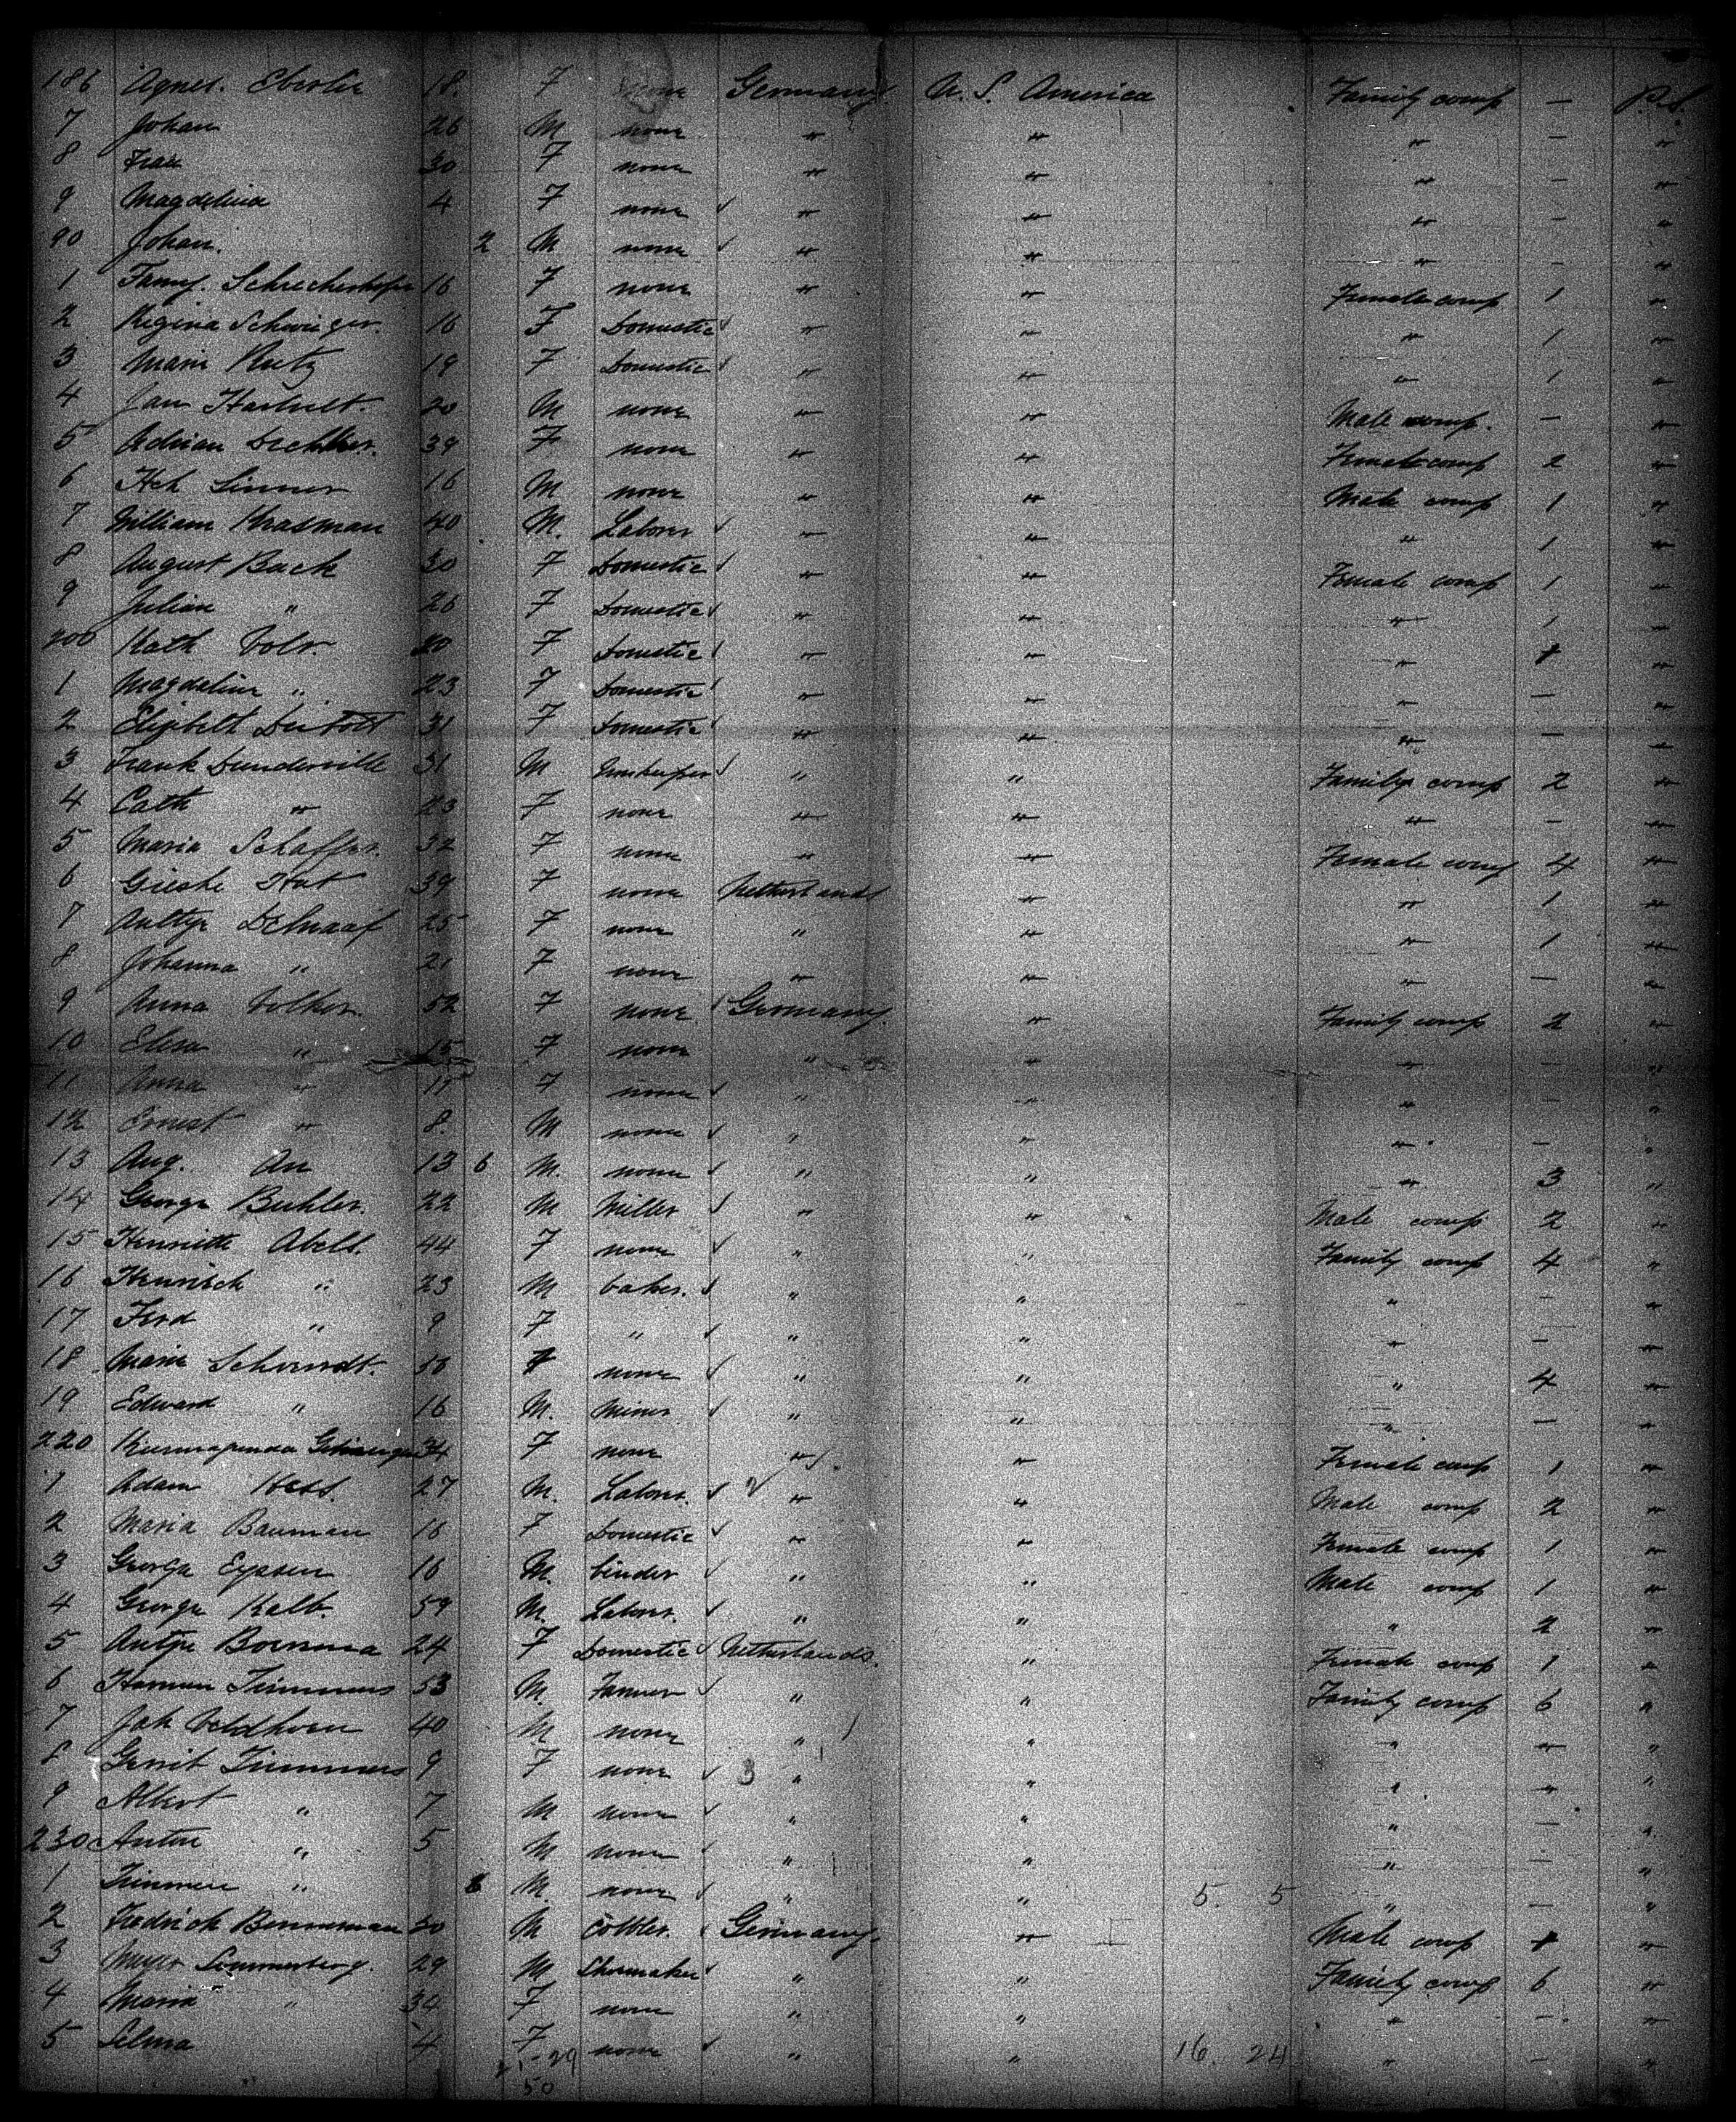 186 Agnes. Eberlie 18. F none Germany. U. S. America Family comp — P.S.
7 Johan 26 M none " " " — "
8 Frau 30 F none " " " — "
9 Magdelina 4 F none " " " — "
90 Johan. 2 M none " " " — "
1 Fanny. 16 F none " " Female comp 1 "
2 Regina Schwieger. 16 F Domestic " " " 1 "
3 Marie Rutz 19 F Domestic " " " 1 "
4 Jan 20 M none " " Male comp. — "
5 Adrian Dechker. 39 F none " " Female comp 2 "
6 Hch 16 M none " " Male comp 1 "
7 William Krasman 40 M. Laborer " " " 1 "
8 August Back 30 F Domestic " " Female comp 1 "
9 Julian " 26 F Domestic " " " 1 "
200 Kath Volr. F Domestic " " " "
1 Magdelina " 23 F Domestic " " " — "
2 31 F Domestic " " " — "
3 Frank Dunderville 31 M " " Family comp 2 "
4 Cath " 23 F none " " " — "
5 Maria Schaffer. 32 F none " " Female comp 4 "
6 Gieske 39 F none Netherlands " " 1 "
7 25 F none " " " 1 "
8 Johanna " 21 F none " " " — "
9 Anna Volker. 52 F none Germany. " Family comp 2 "
10 Elesa " 15 F none " " " — "
11 Anna " 11 F none " " " — "
12 Ernest " 8. M none " " " — "
13 Aug. An 13 6 M. none " " " 3 "
14 George Buhler. 22 M Miller " " Male comp 2 "
15 Henriette Abels. 44 F none " " Family comp 4 "
16 Henrich " 23 M baker. " " " — "
17 Ferd " 9 F " " " " — "
18 Marie Schwndt. F none " " " 4 "
19 Edward " 16 M. Miner " " " — "
220 34 F none " " Female comp 1 "
1 Adam Hess. 27 M. Laborer. " " Male comp 2 "
2 Maria Bauman 16 F Domestic " " Female comp 1 "
3 George Eyssen 16 M. binder " " Male comp 1 "
4 George Kalb. 59 M. Laborer. " " " 2 "
5 Antje Boersma 24 F Domestic Netherlands. " Female comp 1 "
6 Harmen Timmers 53 M. Farmer " " Family comp 6 "
7 Jak Veldhoen 40 M none " " " — "
8 Gerrit Timmers 9 F none 3 " " " — "
9 Albert " 7 M none " " " — "
230 Anton " 5 M none " " " — "
1 " M. none " " 5. 5 " — "
2 Fredrich 30 M Cobbler. Germany. " Male comp "
3 29 M Shoemaker " " Family comp 6 "
4 Maria " 30 F none " " " — "
5 Selma 4 F none " " 16. 24 " — "
21-29
50